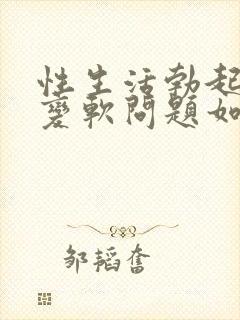 性生活勃起
变软问题如
邹韬奋